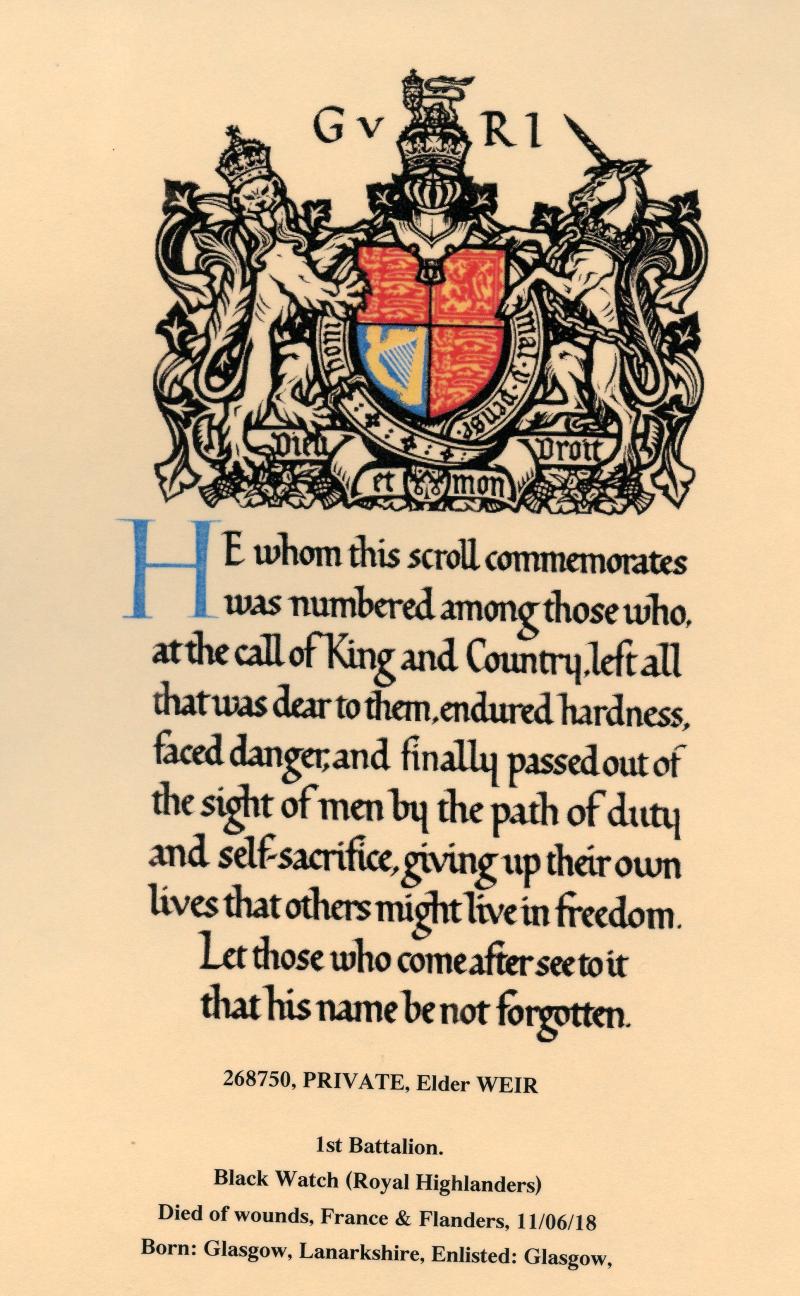 G V R I
mon mal·y·pense·
Dieu Droit
et mon
HE whom this scroll commemorates
was numbered among those who,
at the call of King and Country, left all
that was dear to them, endured hardness,
faced danger, and finally passed out of
the sight of men by the path of duty
and self-sacrifice, giving up their own
lives that others might live in freedom.
Let those who come after see to it
that his name be not forgotten.
268750, PRIVATE, Elder WEIR
1st Battalion.
Black Watch (Royal Highlanders)
Died of wounds, France & Flanders, 11/06/18
Born: Glasgow, Lanarkshire, Enlisted: Glasgow,